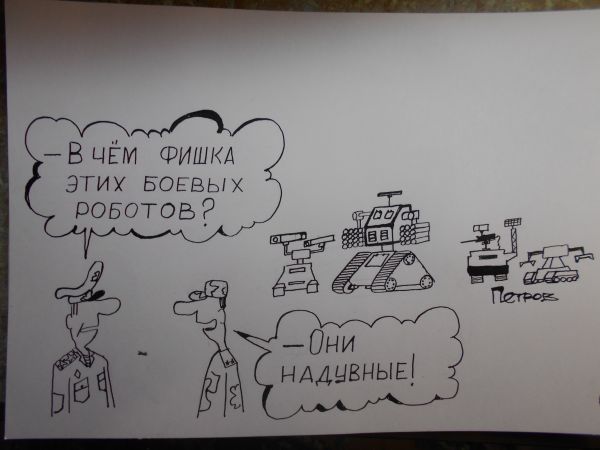 — В ЧЁМ ФИШКА
ЭТИХ БОЕВЫХ
РОБОТОВ?
Петров
— ОНИ
НАДУВНЫЕ!